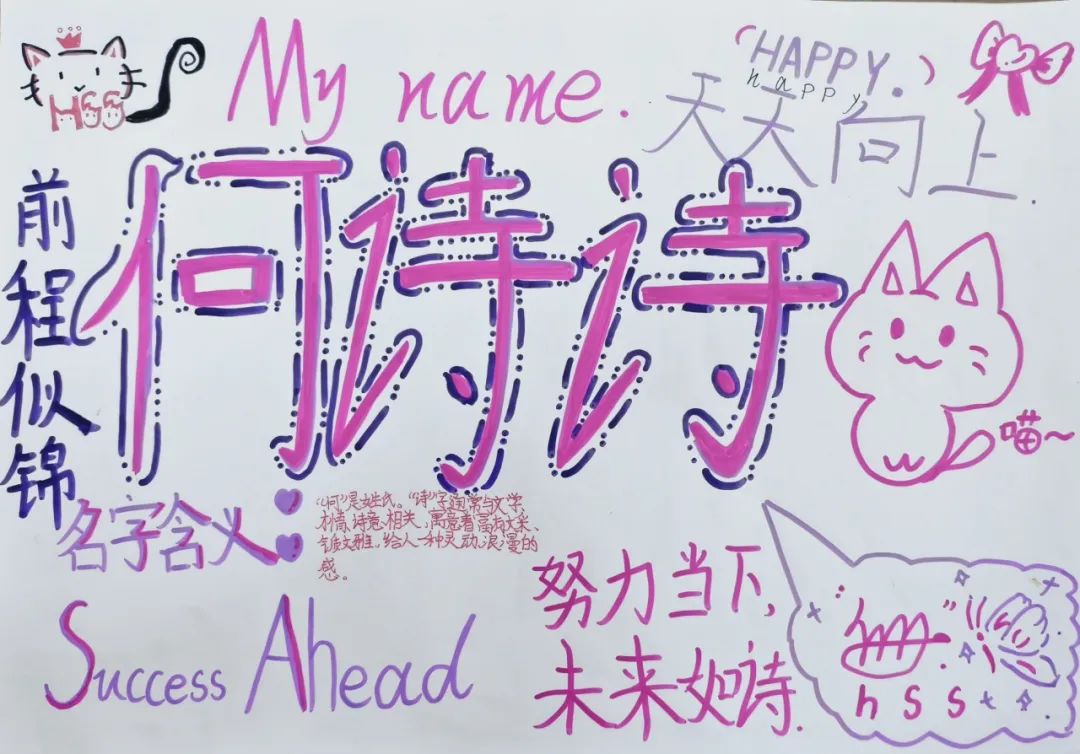 HSS
My name.
HAPPY.
happy
天天向上.
何诗诗
前程似锦
喵~
名字含义:
"何"是姓氏。"诗"字通常与文学、
才情、诗意相关,寓意着富有文采、
气质文雅,给人一种灵动、浪漫的
感。
努力当下,
未来如诗.
Success Ahead
hss